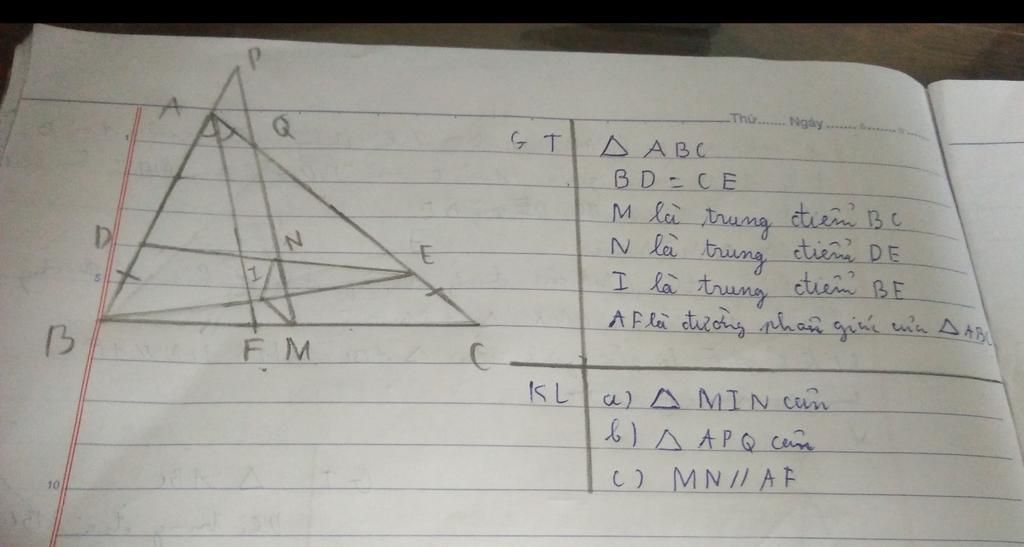 P
A
Q
D
N
I
E
B
F M
C
Thứ....... Ngày
1
5
10
GT
Δ ABC
BD = CE
M là trung điểm BC
N là trung điểm DE
I là trung điểm BE
AF là đường phân giác của Δ ABC
KL
a) Δ MIN cân
b) Δ APQ cân
c) MN // AF